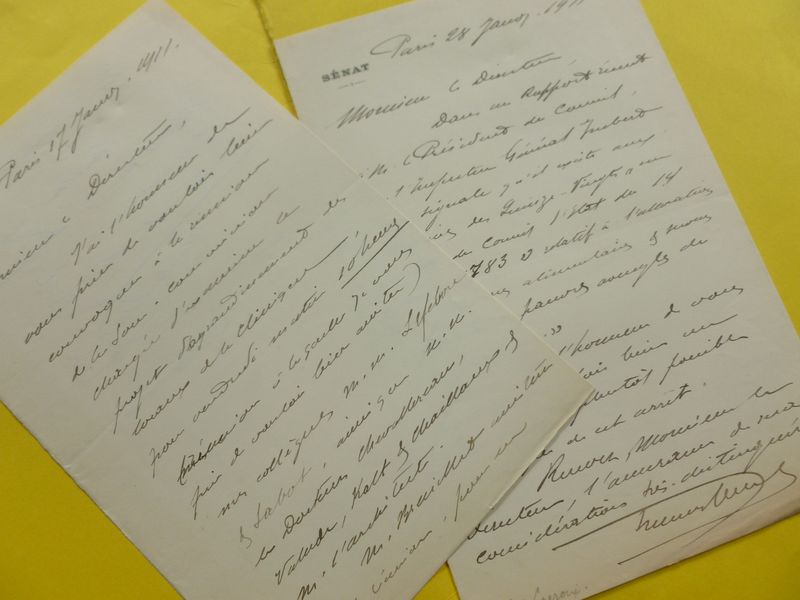 Paris 17 Janv. 1911.
Monsieur le Directeur,
J'ai l'honneur de
vous prier de vouloir bien
convoquer à la réunion
de la Sous-commission
chargée d'examiner le
projet d'agrandissement des
locaux de la Clinique
pour vendredi matin 10 heures
(réunion à laquelle je vous
prie de vouloir bien assister)
nos collègues M.M. Lefebvre
& Sabot, ainsi que M.M.
les Docteurs Chevallereau,
Valude, Kalt & Chaillous &
M. l'architecte.
M. assistera
réunion, pour
Paris 28 Janv. 1911
SÉNAT
Monsieur le Directeur
Dans un Rapport récent
à M. le Président du Conseil,
l'Inspecteur Général Imbert
signale qu'il existe aux
des Quinze-Vingts, un
du Conseil d'Etat du 14
1783 « relatif à l'allocation
alimentaires & mois
pauvres aveugles de
»
l'honneur de vous
bien me
plutôt possible
de cet arrêt.
Recevez, Monsieur le
Directeur, l'assurance de ma
considération très distinguée